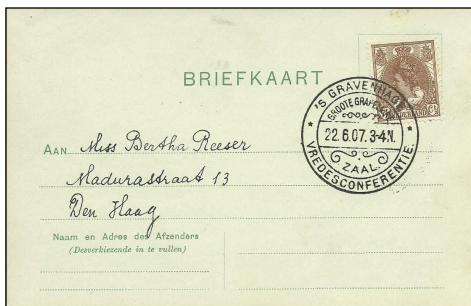 BRIEFKAART
'S GRAVENHAGE
GROOTE GRAFELIJKE
22.6.07.3-4N.
ZAAL.
VREDESCONFERENTIE.
AAN Miss Bertha Reeser
Madurastraat 13
Den Haag
Naam en Adres des Afzenders
(Desverkiezende in te vullen)